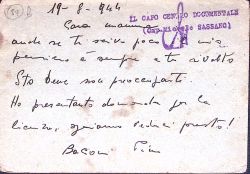 19-8-944
IL CAPO CENTRO DOCUMENTALE
(Cap. Michele SASSANO)
Cara mamma
anche se ti scrivo poco il mio
pensiero è sempre a te rivolto
Sto bene non preoccuparti.
Ho presentato domanda per la
licenza, speriamo vederci presto!
Bacioni